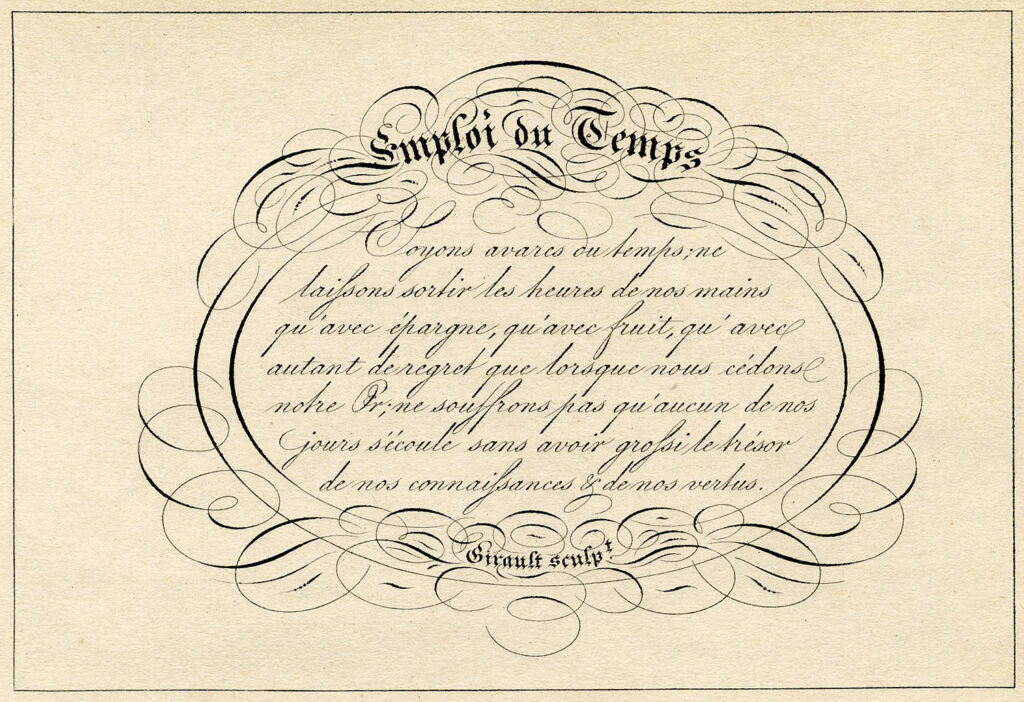 Emploi du Temps
Soyons avares du temps; ne
laiſsons sortir les heures de nos mains
qu'avec épargne, qu'avec fruit, qu'avec
autant de regret que lorsque nous cédons
notre Or; ne souffrons pas qu'aucun de nos
jours s'écoule sans avoir groſsi le trésor
de nos connaiſsances & de nos vertus.
Girault sculpt.